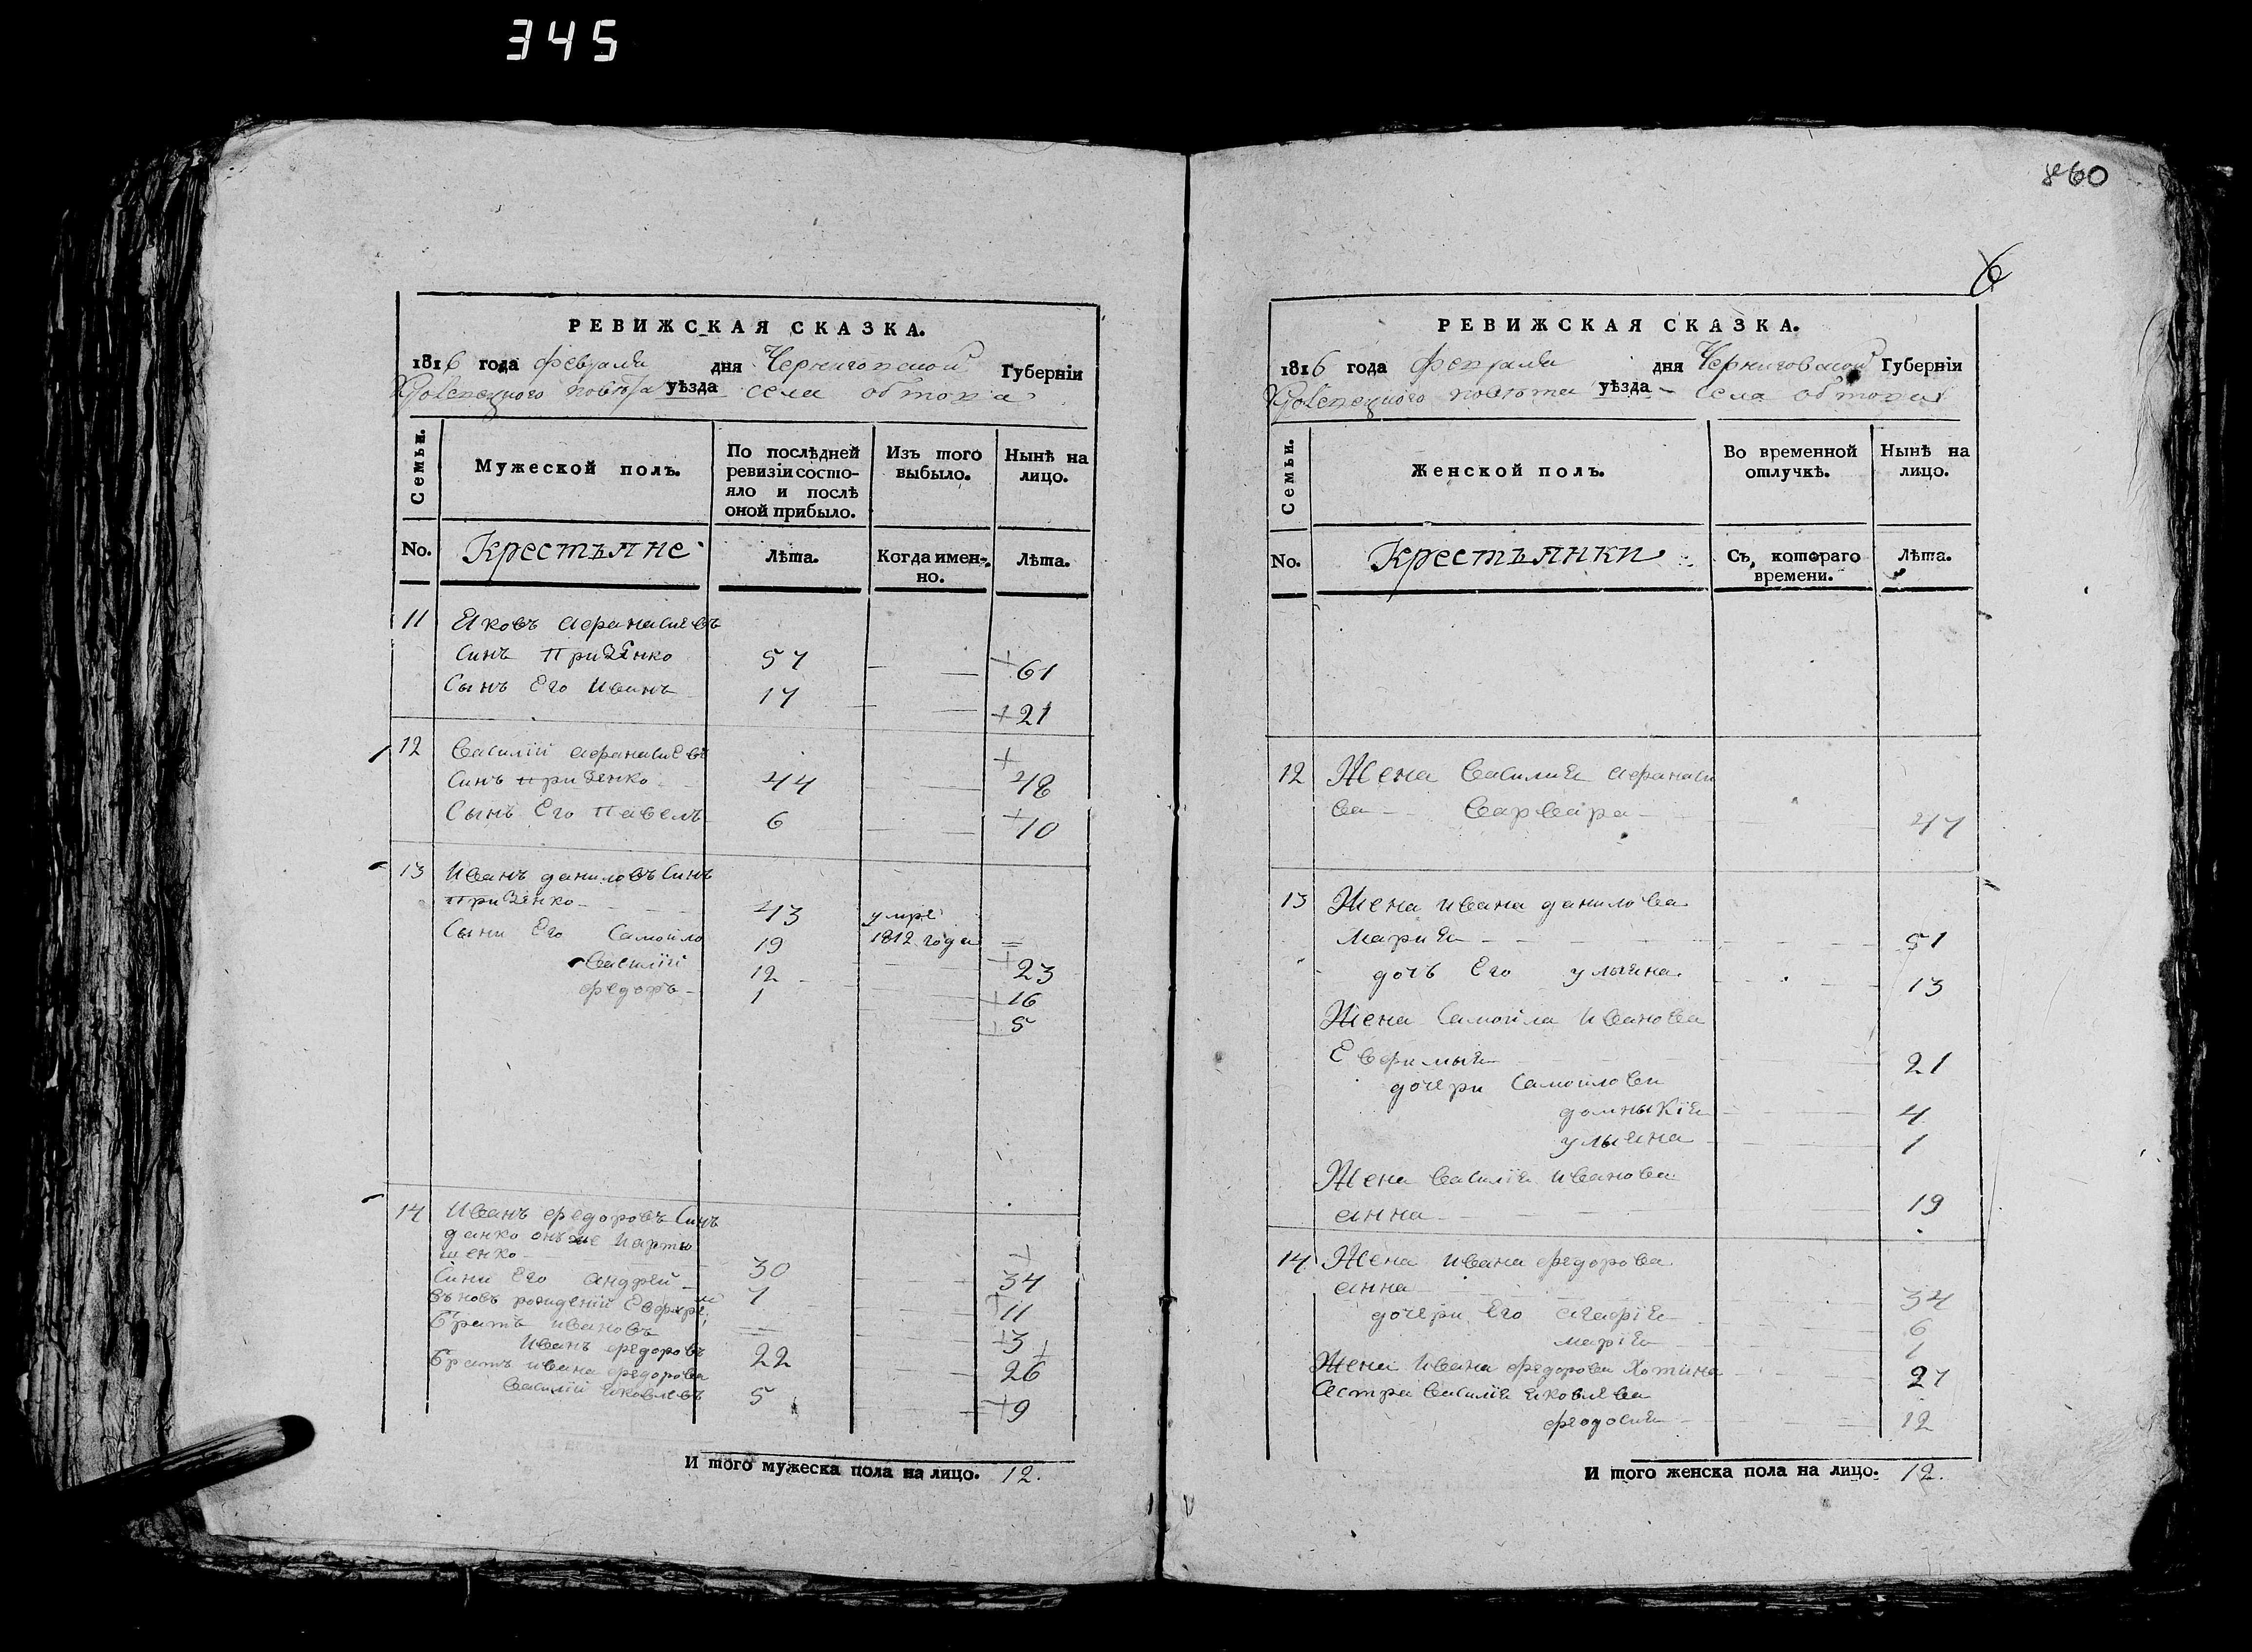 345
860
6
РЕВИЖСКАЯ СКАЗКА.
1816 года февраля дня Черниговской Губернїи
Кролевецкого повѣта уѣзда села обтова
Семьи.
Мужеской полъ.
По послѣдней ревизїи состо-
яло и послѣ
оной прибыло.
Изъ того выбыло.
Нынѣ на лицо.
No.
Крестъяне
Лѣта.
Когда имен-
но.
Лѣта.
11 Яковъ афанасиевъ
синъ Призенко 57 61
Сынъ Его иванъ 17 21
12 Василій афанасиевъ
Синъ призенко 44 48
Сынъ Его павелъ 6 10
13 Иванъ даниловъ Синъ
призенко 43 умре 1812 года
Сыни Его Самойло 19 23
Василїй 12 16
федоръ 1 5
14 Иванъ федоровъ Синъ
данко онъже
шенко 30 34
Сини Его андрей 7 11
въновъ рожденїй 3
братъ ивановъ
иванъ федоровъ 22 26
братъ ивана федорова
Василїй яковлевъ 5 9
И того мужеска пола на лицо. 12.
РЕВИЖСКАЯ СКАЗКА.
1816 года февраля дня Черниговской Губернїи
Кролевецкого повѣта уѣзда села обтова
Семьи.
Женской полъ.
Во временной отлучкѣ.
Нынѣ на лицо.
No.
Крестъянки
Съ котораго времени.
Лѣта.
12 Жена Василия афанаси
ва Варвара 47
13 Жена ивана данилова
мария 51
дочъ Его улияна 13
Жена Самойла иванова
Евфимыя 21
дочери Самойлови
домныкїя 4
улыяна 1
Жена Василїя иванова
анна 19
14 Жена ивана федорова
анна 34
дочери Его агафїя 6
марїя 1
Жена ивана федорова Хотина 27
Сестра Василїя яковлева
феодосия 12
И того женска пола на лицо. 12.